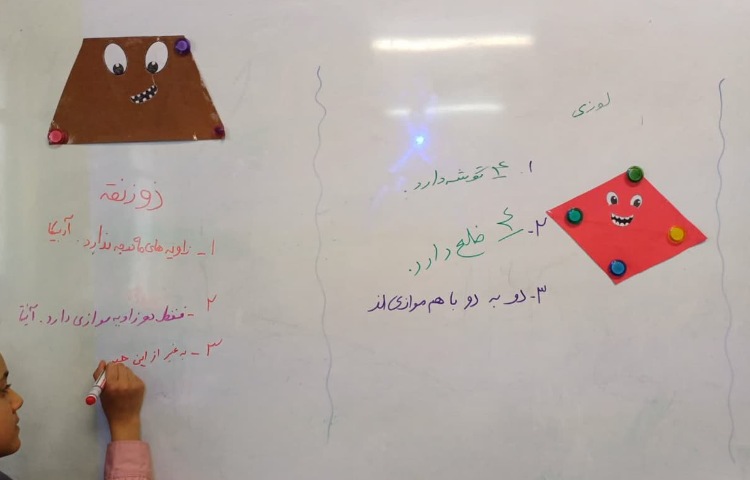 لوزی
۱. ۴ گوشه دارد.
۲. ۴ ضلع دارد.
۳- دو به دو با هم موازی اند
ذوزنقه
۱- زاویه های ۹۰ درجه ندارد. آریکا
۲- فقط دو زاویه موازی دارد. آیتا
۳- به غیر از این